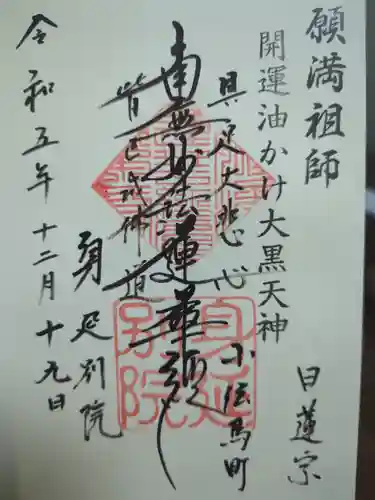 願満祖師
日蓮宗
開運油かけ大黒天神
具足大悲心
小伝馬町
南無妙法蓮華経
皆已成佛道
身延別院
令和五年十二月十九日
身延
別院